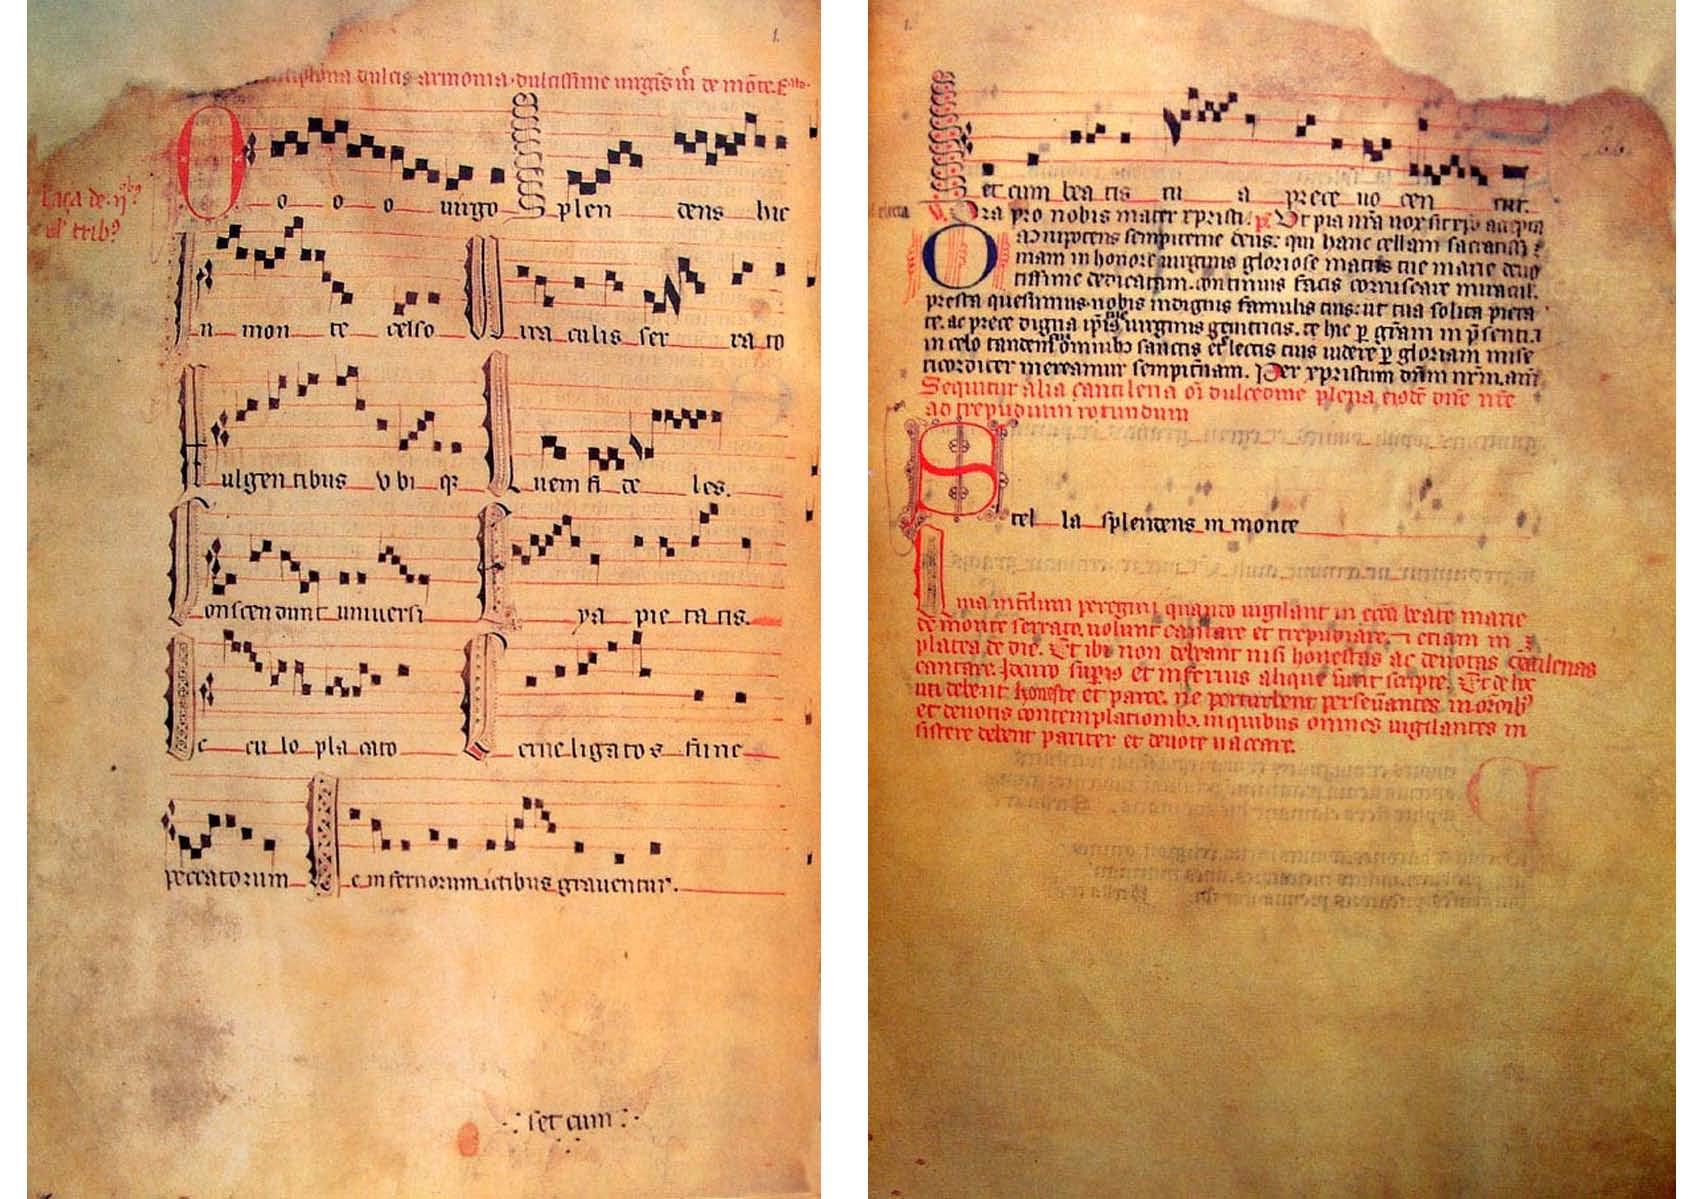 1.
antiphona dulcis armonia dulcissime virgis m̄ de mōte.
Caça de
vel trib9
O o o o uirgo Splen dens hic
In mon te celso Mira culis ser ra to
Fulgen tibus v bi qz Quem fi de les.
Conscen dunt universi Eya pie ta tis.
Oc cu lo pla cato Cerne ligato s fune
peccatorum Ne infernorum ictibus graventur.
∴ set cum ∴
1.
Set cum bea tis tu a prece vo cen tur.
Ora pro nobis mater xpristi. Ut pia nr̄a vox sit
Omnipotens sempiterne deus: qui hanc cellam sacratissi
mam in honore uirginis gloriose matris tue marie deuo
tissime dedicatam. continuis facis coruscare miracul.
presta quesumus. nobis indignis famulis tuis: ut tua solita pieta
te. ac prece digna ip̄i9 uirginis genitricis. te hic p gr̄am in p̄senti. 7
in celo tandem omnibɔ sanctis et electis tuis videre p gloriam mise
ricorditer mereamur sempit̄nam. Per xpristum dn̄m nr̄m. am̄
Sequitur alia cantilena oī dulcedine plena eiusdē dn̄e nr̄e
ad trepudium rotundum
Stel la splendens in monte
Quia interdum peregrini quando uigilant in ecc̄a beate marie
de monte serrato volunt cantare et trepudiare. 7 etiam in
platea de die. Et ibi non debeant nisi honestas ac deuotas cātilenas
cantare. Idcirco sup̄i9 et inferius alique sunt scripte. Et de hoc
uti debent honeste et parce. ne perturbent perseūantes in oroib9
et deuotis contemplationibɔ. in quibus omnes uigilantes in
sistere debent pariter et deuote vaccare.